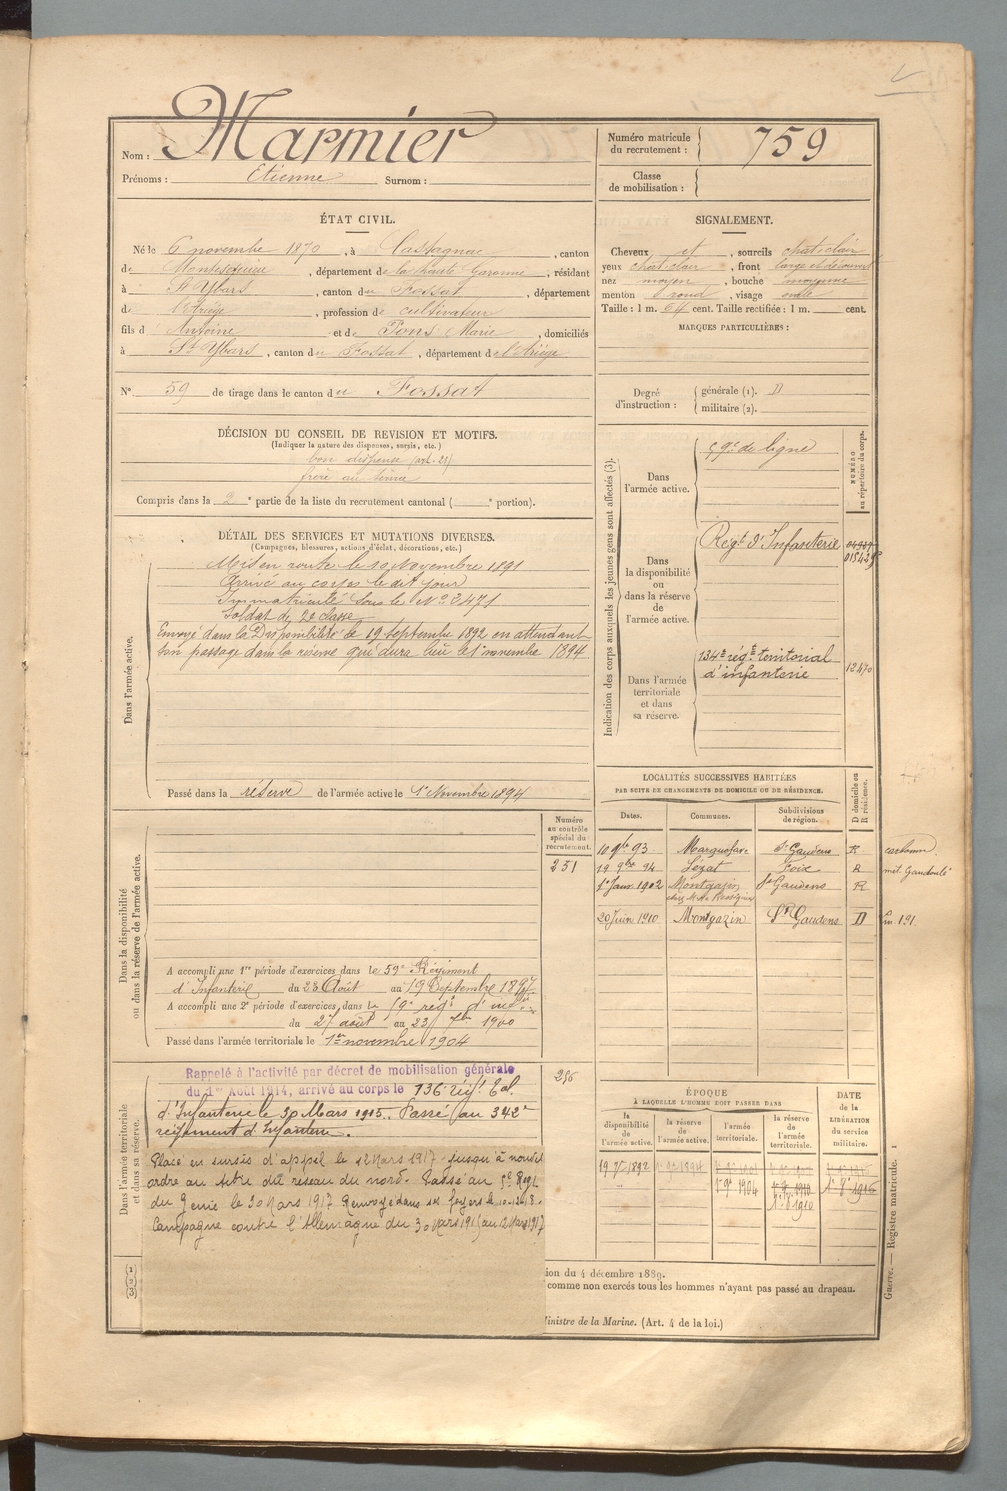 Nom : Marmier
Prénoms : Etienne Surnom :
Numéro matricule du recrutement : 759
Classe de mobilisation :
ÉTAT CIVIL.
Né le 6 novembre 1870, à Castagnac, canton
de Montesquieu, département de la haute Garonne, résidant
à St Ybars, canton du Fossat, département
de l'Ariège, profession de cultivateur
fils d' Antoine et de Pons Marie, domiciliés
à St Ybars, canton du Fossat, département de l'Ariège
N° 59 de tirage dans le canton du Fossat
SIGNALEMENT.
Cheveux et, sourcils chat. clair
yeux chat. clair, front large et découvert
nez moyen, bouche moyenne
menton rond, visage ovale
Taille : 1 m. 64 cent. Taille rectifiée : 1 m. cent.
MARQUES PARTICULIÈRES :
Degré d'instruction :
générale (1). D
militaire (2).
DÉCISION DU CONSEIL DE REVISION ET MOTIFS.
(Indiquer la nature des dispenses, sursis, etc.)
bon dispensé (art. 21)
frère au service
Compris dans la 2e partie de la liste du recrutement cantonal ( e portion).
DÉTAIL DES SERVICES ET MUTATIONS DIVERSES.
(Campagnes, blessures, actions d'éclat, décorations, etc.)
Dans l'armée active.
Mis en route le 10 Novembre 1891
Arrivé au corps le dit jour
Immatriculé sous le No 2471
Soldat de 2e classe
Envoyé dans la Disponibilité le 19 septembre 1892 en attendant
son passage dans la réserve qui aura lieu le 1er novembre 1894
Passé dans la réserve de l'armée active le 1er Novembre 1894
Indication des corps auxquels les jeunes gens sont affectés (3).
Dans l'armée active.
59e de ligne
NUMÉRO au répertoire du corps.
Dans la disponibilité ou dans la réserve de l'armée active.
Régt d'Infanterie
Dans l'armée territoriale et dans sa réserve.
134e régt territorial
d'infanterie
12470
Dans la disponibilité ou dans la réserve de l'armée active.
Numéro au contrôle spécial du recrutement.
251
A accompli une 1re période d'exercices dans le 59e Régiment
d'Infanterie du 23 Août au 19 Septembre 1897
A accompli une 2e période d'exercices dans le régt
du 27 août au 23 7bre 1900
Passé dans l'armée territoriale le 1er novembre 1904
LOCALITÉS SUCCESSIVES HABITÉES
PAR SUITE DE CHANGEMENTS DE DOMICILE OU DE RÉSIDENCE.
Dates. Communes. Subdivisions de région. D domicile ou R résidence.
10 9bre 93 St Gaudens R
19 9bre 94 Lézat Foix R
1er Janv. 1902 Montgazin St Gaudens R
20 Juin 1910 Montgazin St Gaudens D
Dans l'armée territoriale et dans sa réserve.
Rappelé à l'activité par décret de mobilisation générale
du 1er Août 1914, arrivé au corps le 136e régt Tal
d'Infanterie le 30 Mars 1915. Passé au 342e
régiment d'Infanterie.
Placé en sursis d'appel le 12 Mars 1917 jusqu'à nouvel
ordre au titre du réseau du nord. Passé au 5e Régt
du Génie le 30 Mars 1917 Renvoyé dans ses foyers le
Campagne contre l'Allemagne du 30 Mars 1915 au 12 Mars 1917
ÉPOQUE
A LAQUELLE L'HOMME DOIT PASSER DANS
la disponibilité de l'armée active. la réserve de l'armée active. l'armée territoriale. la réserve de l'armée territoriale.
DATE de la LIBÉRATION du service militaire.
ion du 4 décembre 1889.
comme non exercés tous les hommes n'ayant pas passé au drapeau.
inistre de la Marine. (Art. 4 de la loi.)
Guerre. — Registre matricule. 1